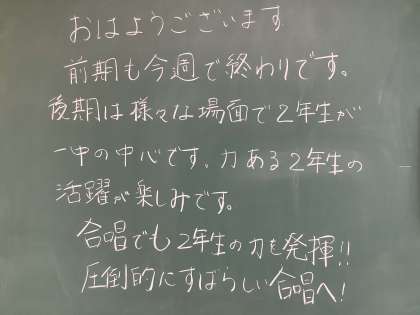 おはようございます
前期も今週で終わりです。
後期は様々な場面で2年生が
一中の中心です、力ある2年生の
活躍が楽しみです。
合唱でも2年生の力を発揮!!
圧倒的にすばらしい合唱へ!